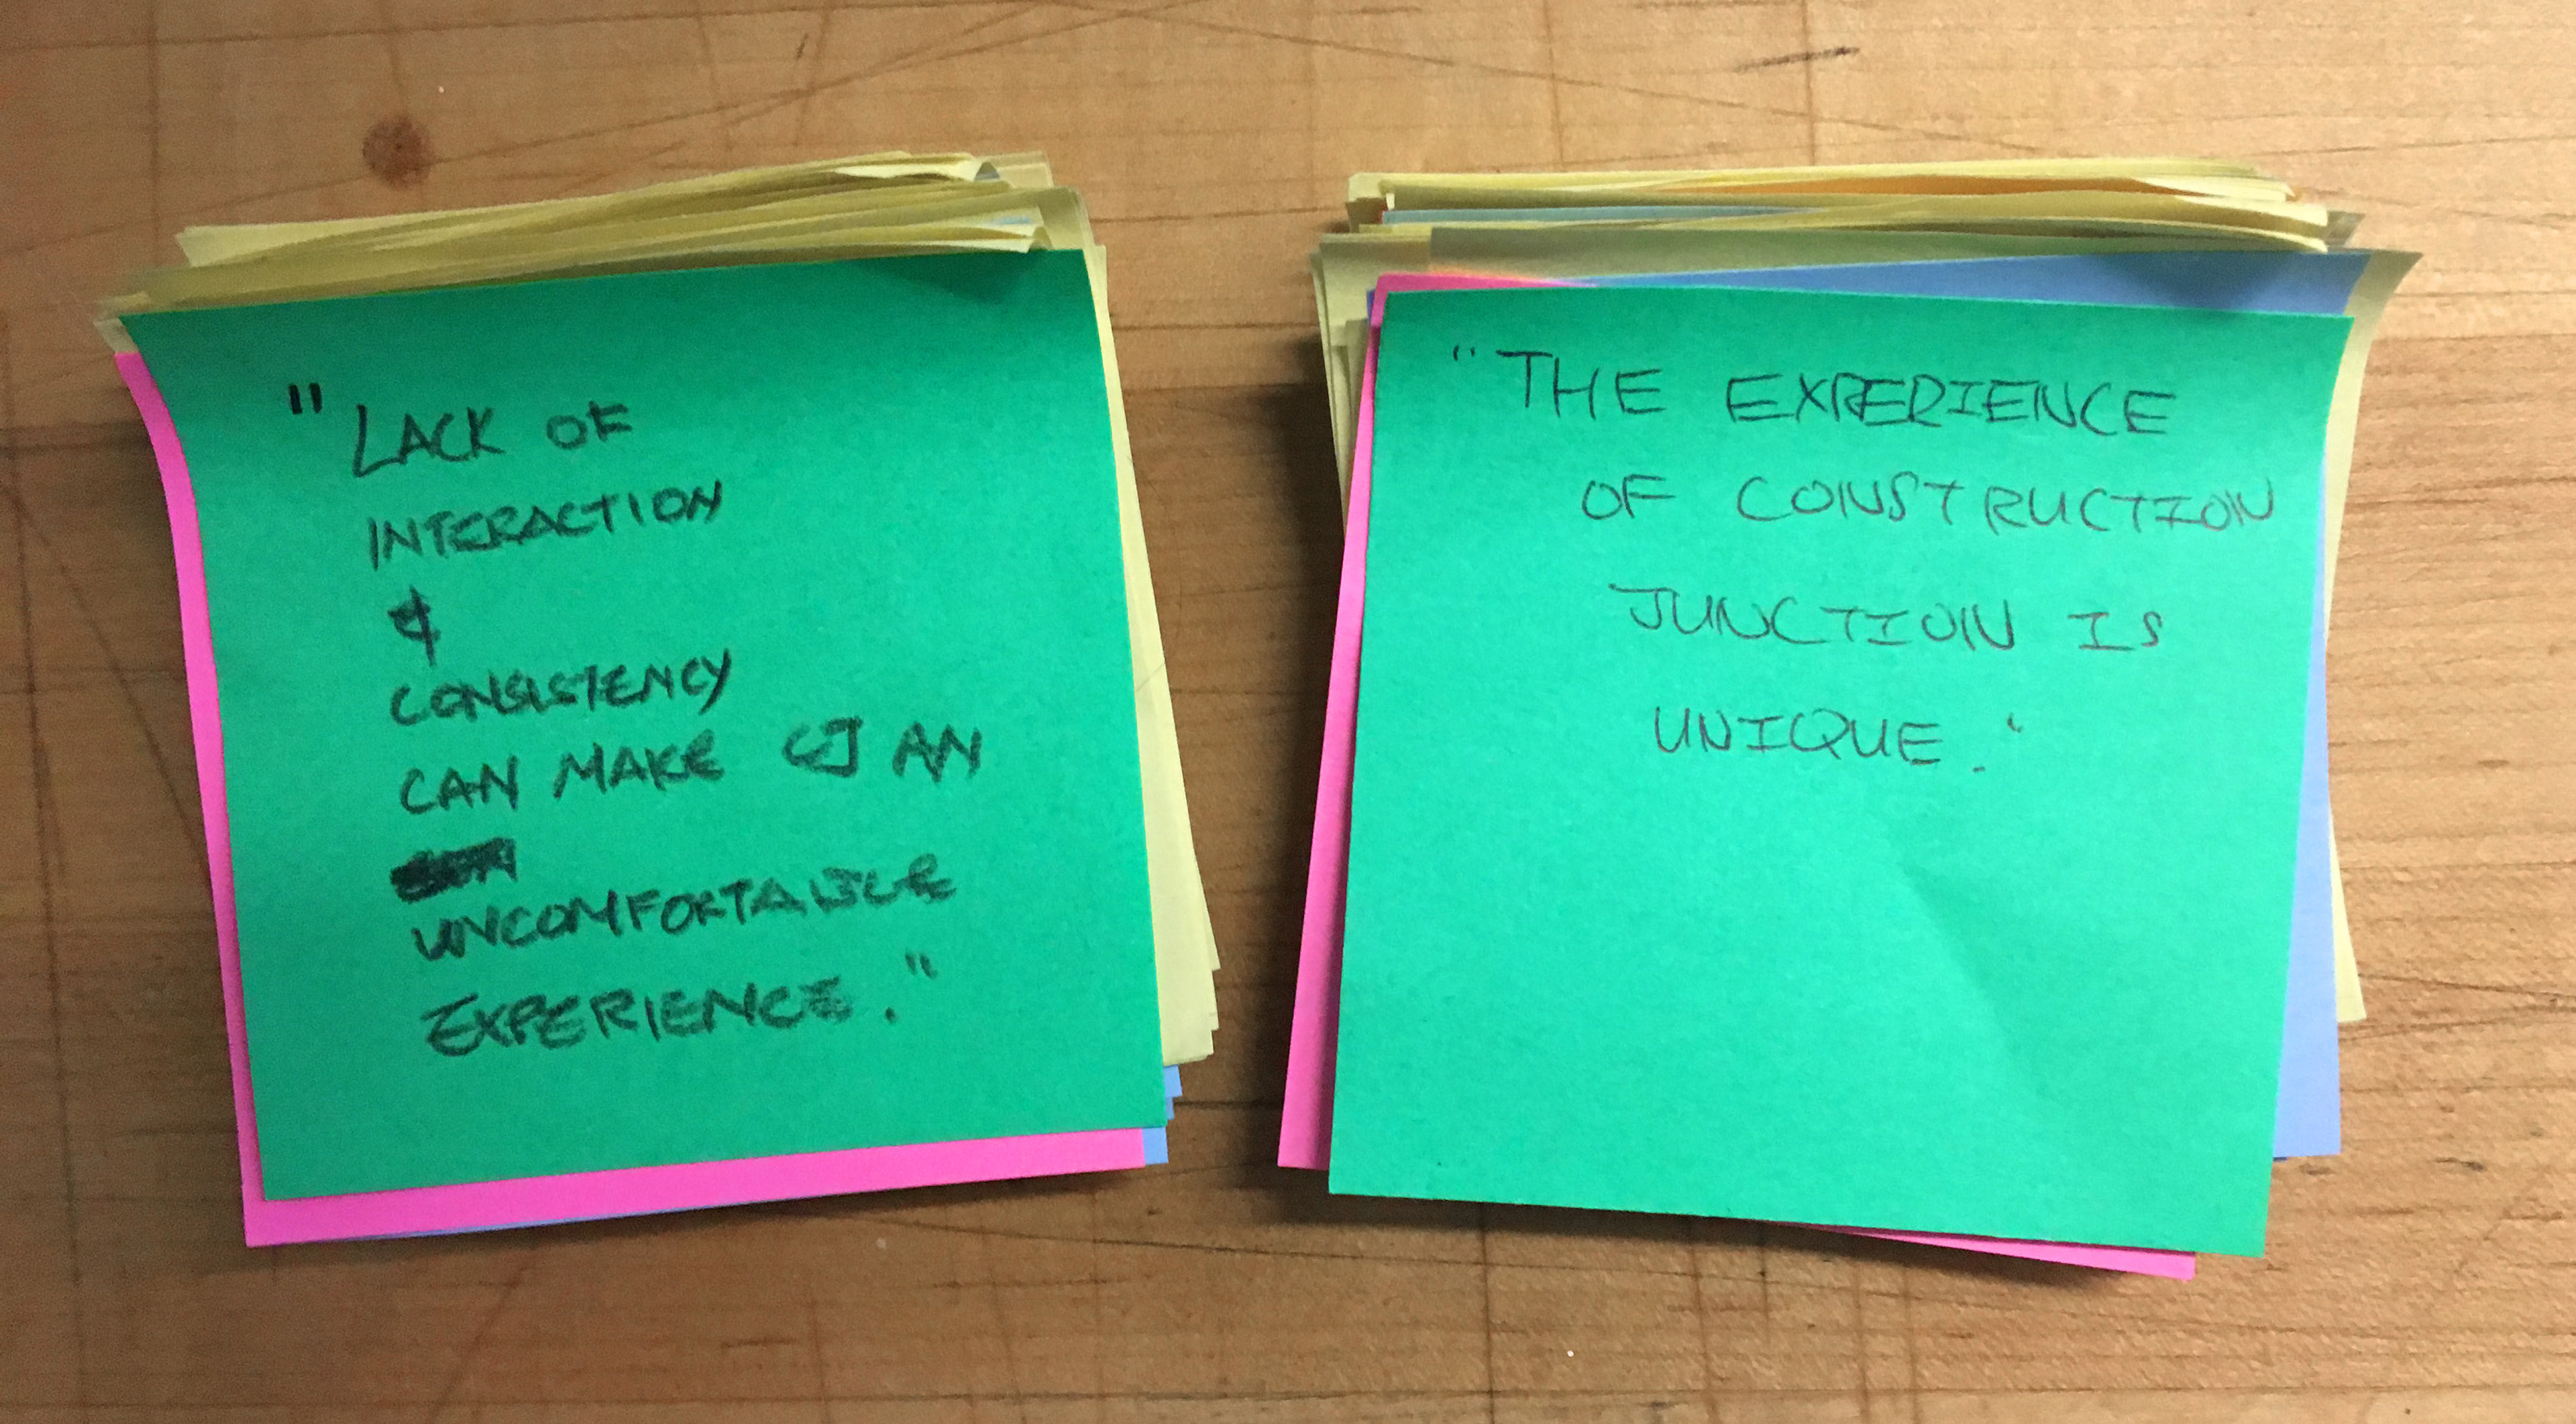 "LACK OF
INTERACTION
&
CONSISTENCY
CAN MAKE CJ AN
UNCOMFORTABLE
EXPERIENCE."
"THE EXPERIENCE
OF CONSTRUCTION
JUNCTION IS
UNIQUE."